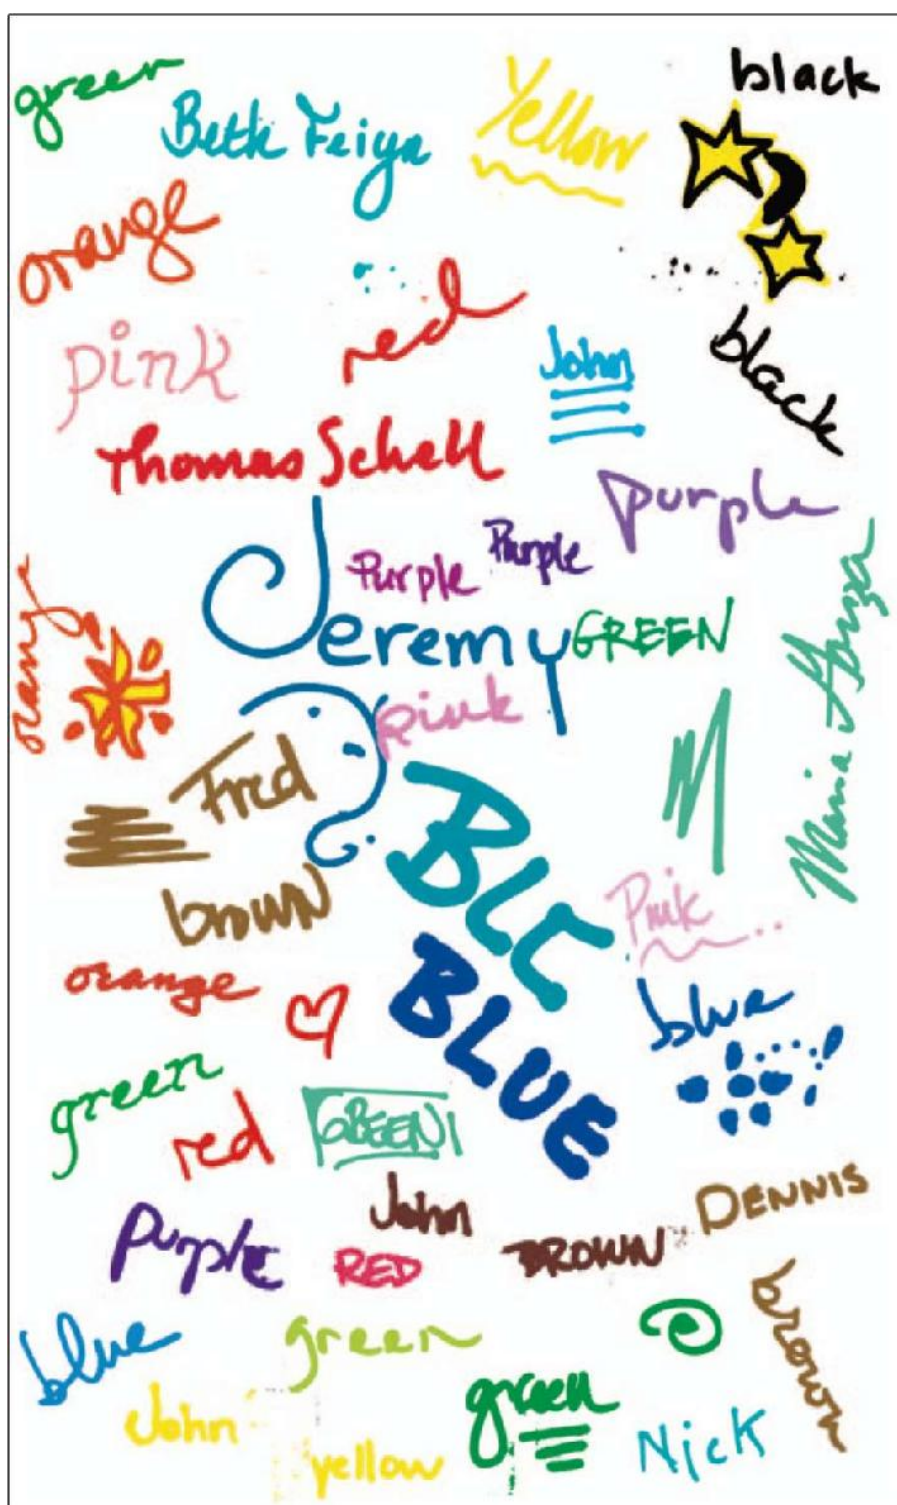 green
Beth Feiya
Yellow
black
orange
red
pink
John
black
Thomas Schell
purple
Purple
Purple
Jeremy
GREEN
orange
pink
Maria Garza
M
Fred
BLUE
brown
Pink
orange
BLUE
blue
green
red
GREEN
John
DENNIS
purple
RED
BROWN
brown
blue
green
John
green
yellow
Nick